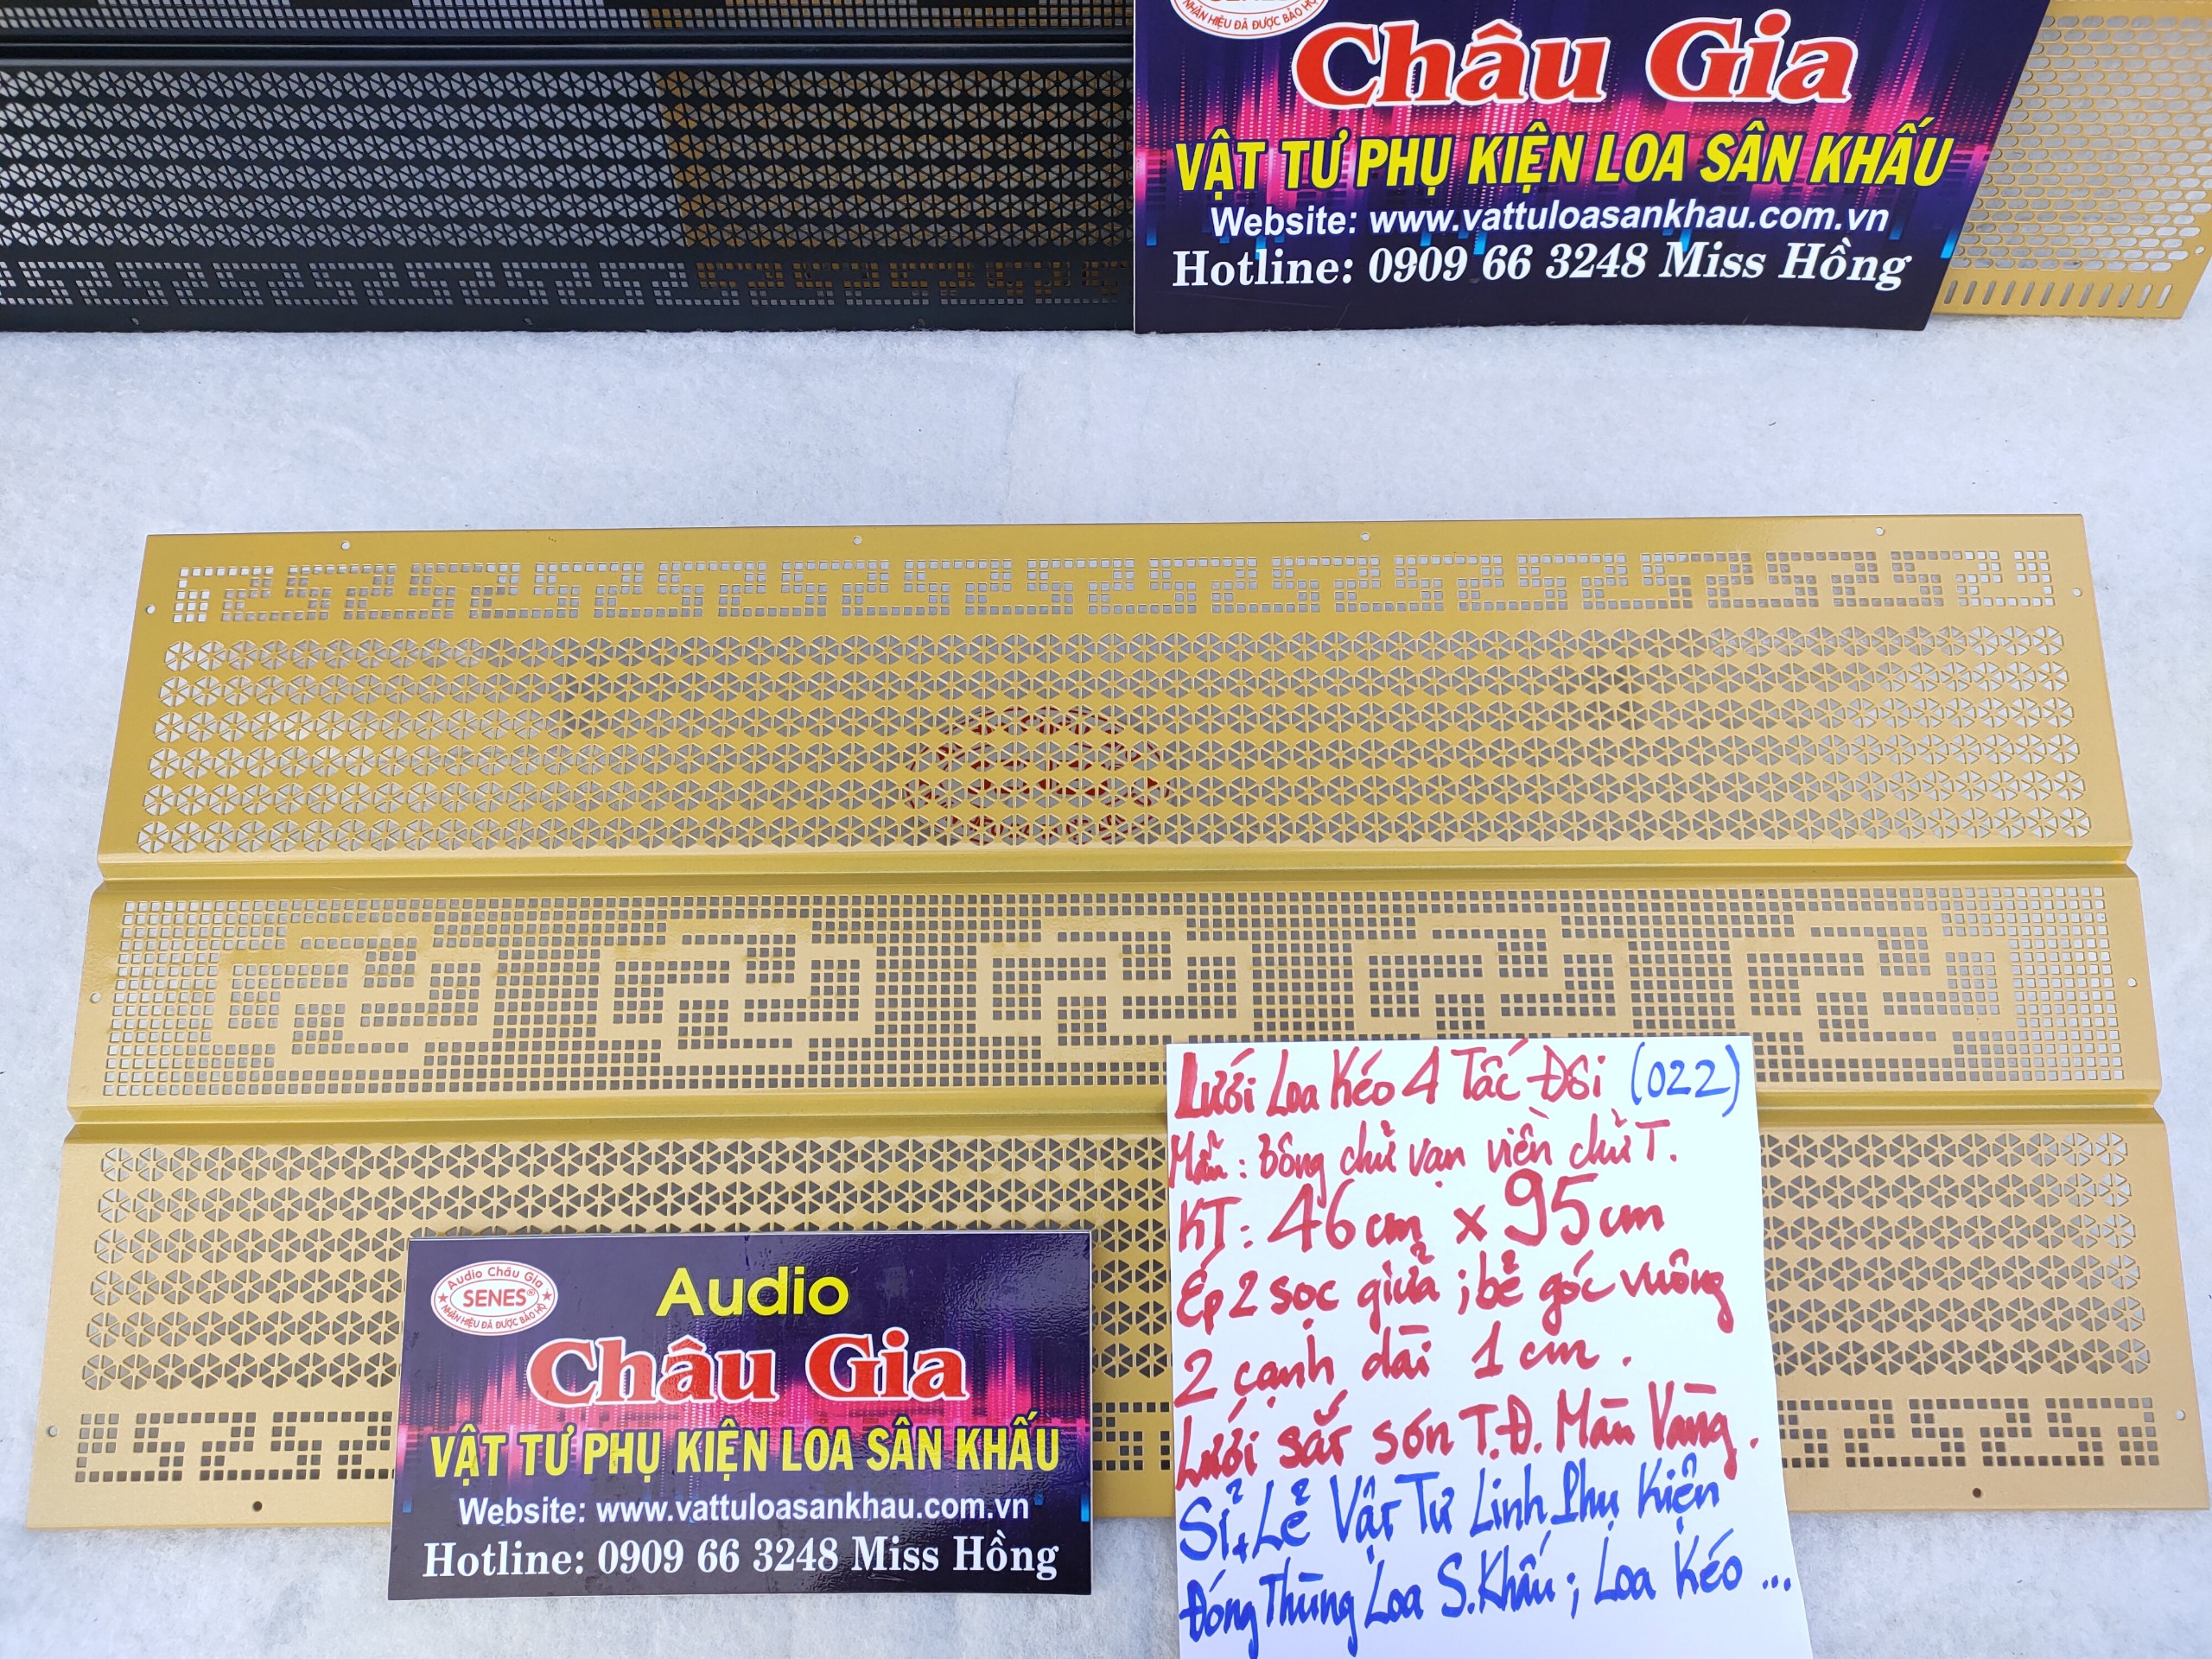 NHÃN HIỆU ĐÃ ĐƯỢC BẢO HỘ
Châu Gia
VẬT TƯ PHỤ KIỆN LOA SÂN KHẤU
Website: www.vattuloasankhau.com.vn
Hotline: 0909 66 3248 Miss Hồng
Lưới Loa Kéo 4 Tấc Đôi (022)
Mẫu: Bông chữ vạn viền chữ T.
KT: 46cm x 95cm
Ép 2 sọc giữa; bẻ góc vuông
2 cạnh dài 1 cm.
Lưới sắt sơn T.Đ. Màu Vàng.
Sỉ+Lẻ Vật Tư Linh Phụ Kiện
Đóng Thùng Loa S.Khấu; Loa Kéo ...
Audio Châu Gia
SENES®
NHÃN HIỆU ĐÃ ĐƯỢC BẢO HỘ
Audio
Châu Gia
VẬT TƯ PHỤ KIỆN LOA SÂN KHẤU
Website: www.vattuloasankhau.com.vn
Hotline: 0909 66 3248 Miss Hồng